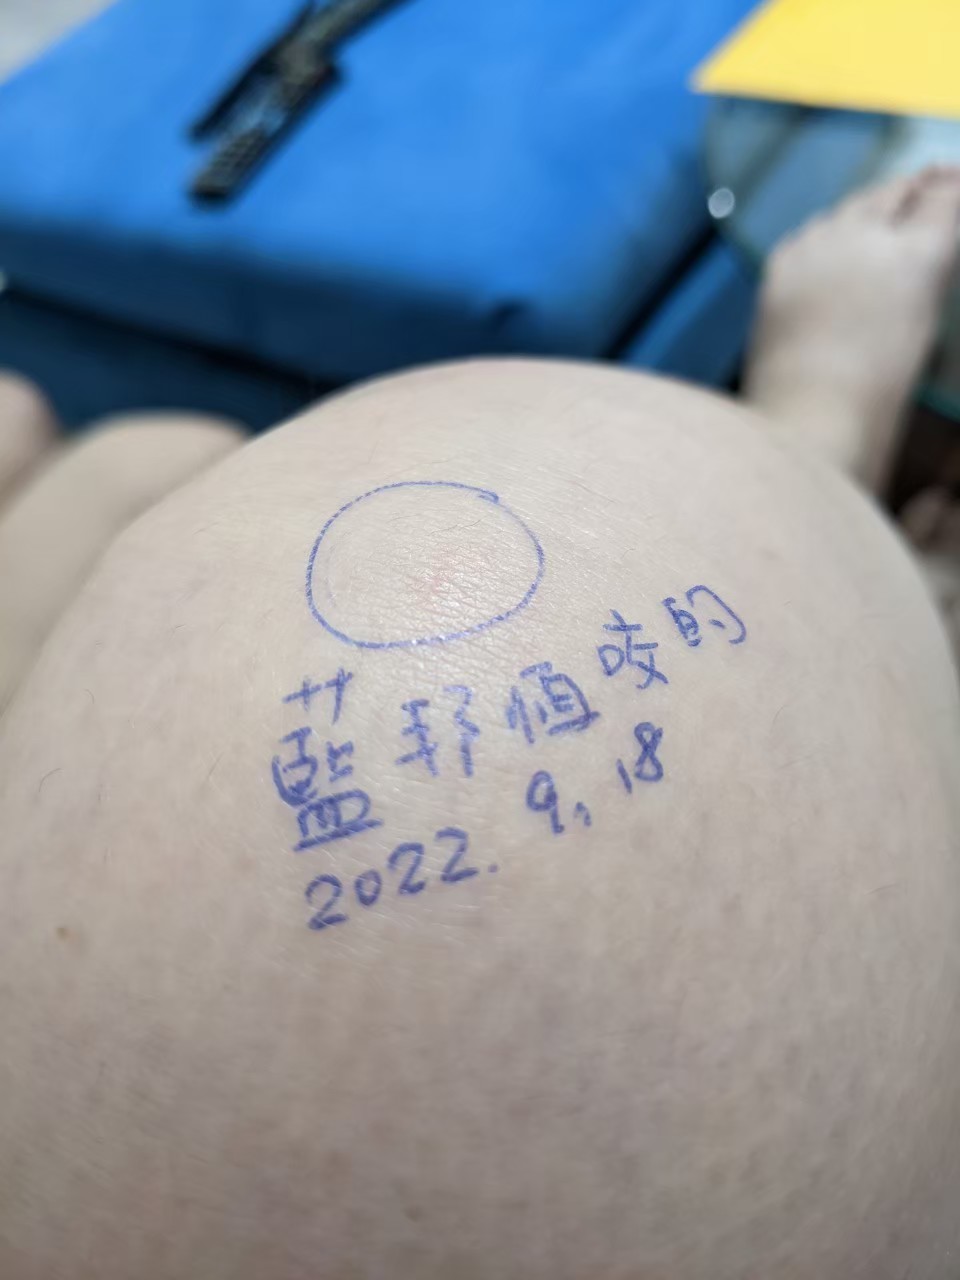 藍邦恒咬的
2022.9.18